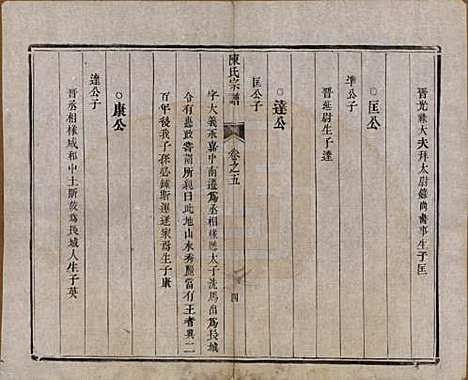 晉光祿大夫拜太尉錄尚書事生子匡
○匡公
準公子
晉廷尉生子達
○達公
匡公子
陳氏宗譜
卷之五
四
字大義永嘉中南遷為丞相掾歷太子洗馬出為長城
令有惠政嘗謂所親曰此地山水秀麗當有王者興二
百年後我子孫必鍾斯運遂家焉生子康
○康公
達公子
晉丞相掾咸和中土斷後為長城人生子英